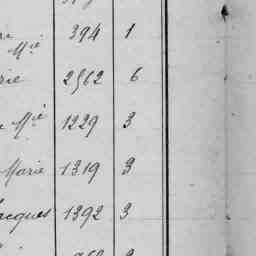 Mie 394 1
rie 2562 6
Mie 1229 3
Marie 1319 3
acques 1392 3